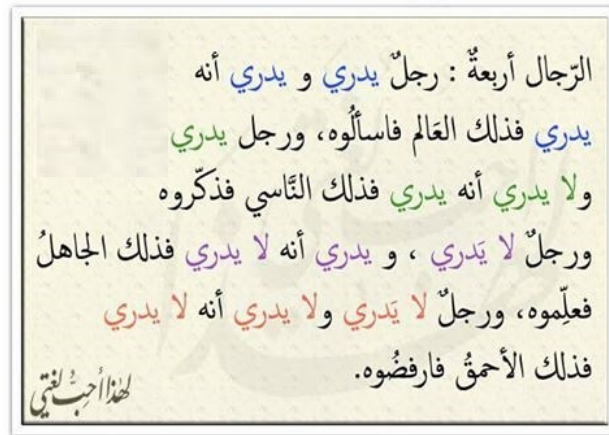 الرّجال أربعةٌ : رجلٌ يدري و يدري أنه
يدري فذلك العَالم فاسألُوه، ورجل يدري
ولا يدري أنه يدري فذلك النَّاسي فذكّروه
ورجلٌ لا يَدري ، و يدري أنه لا يدري فذلك الجاهلُ
فعلِّموه، ورجلٌ لا يَدري ولا يدري أنه لا يدري
فذلك الأحمقُ فارفضُوه.
لهذا أحِبُّ لغتي